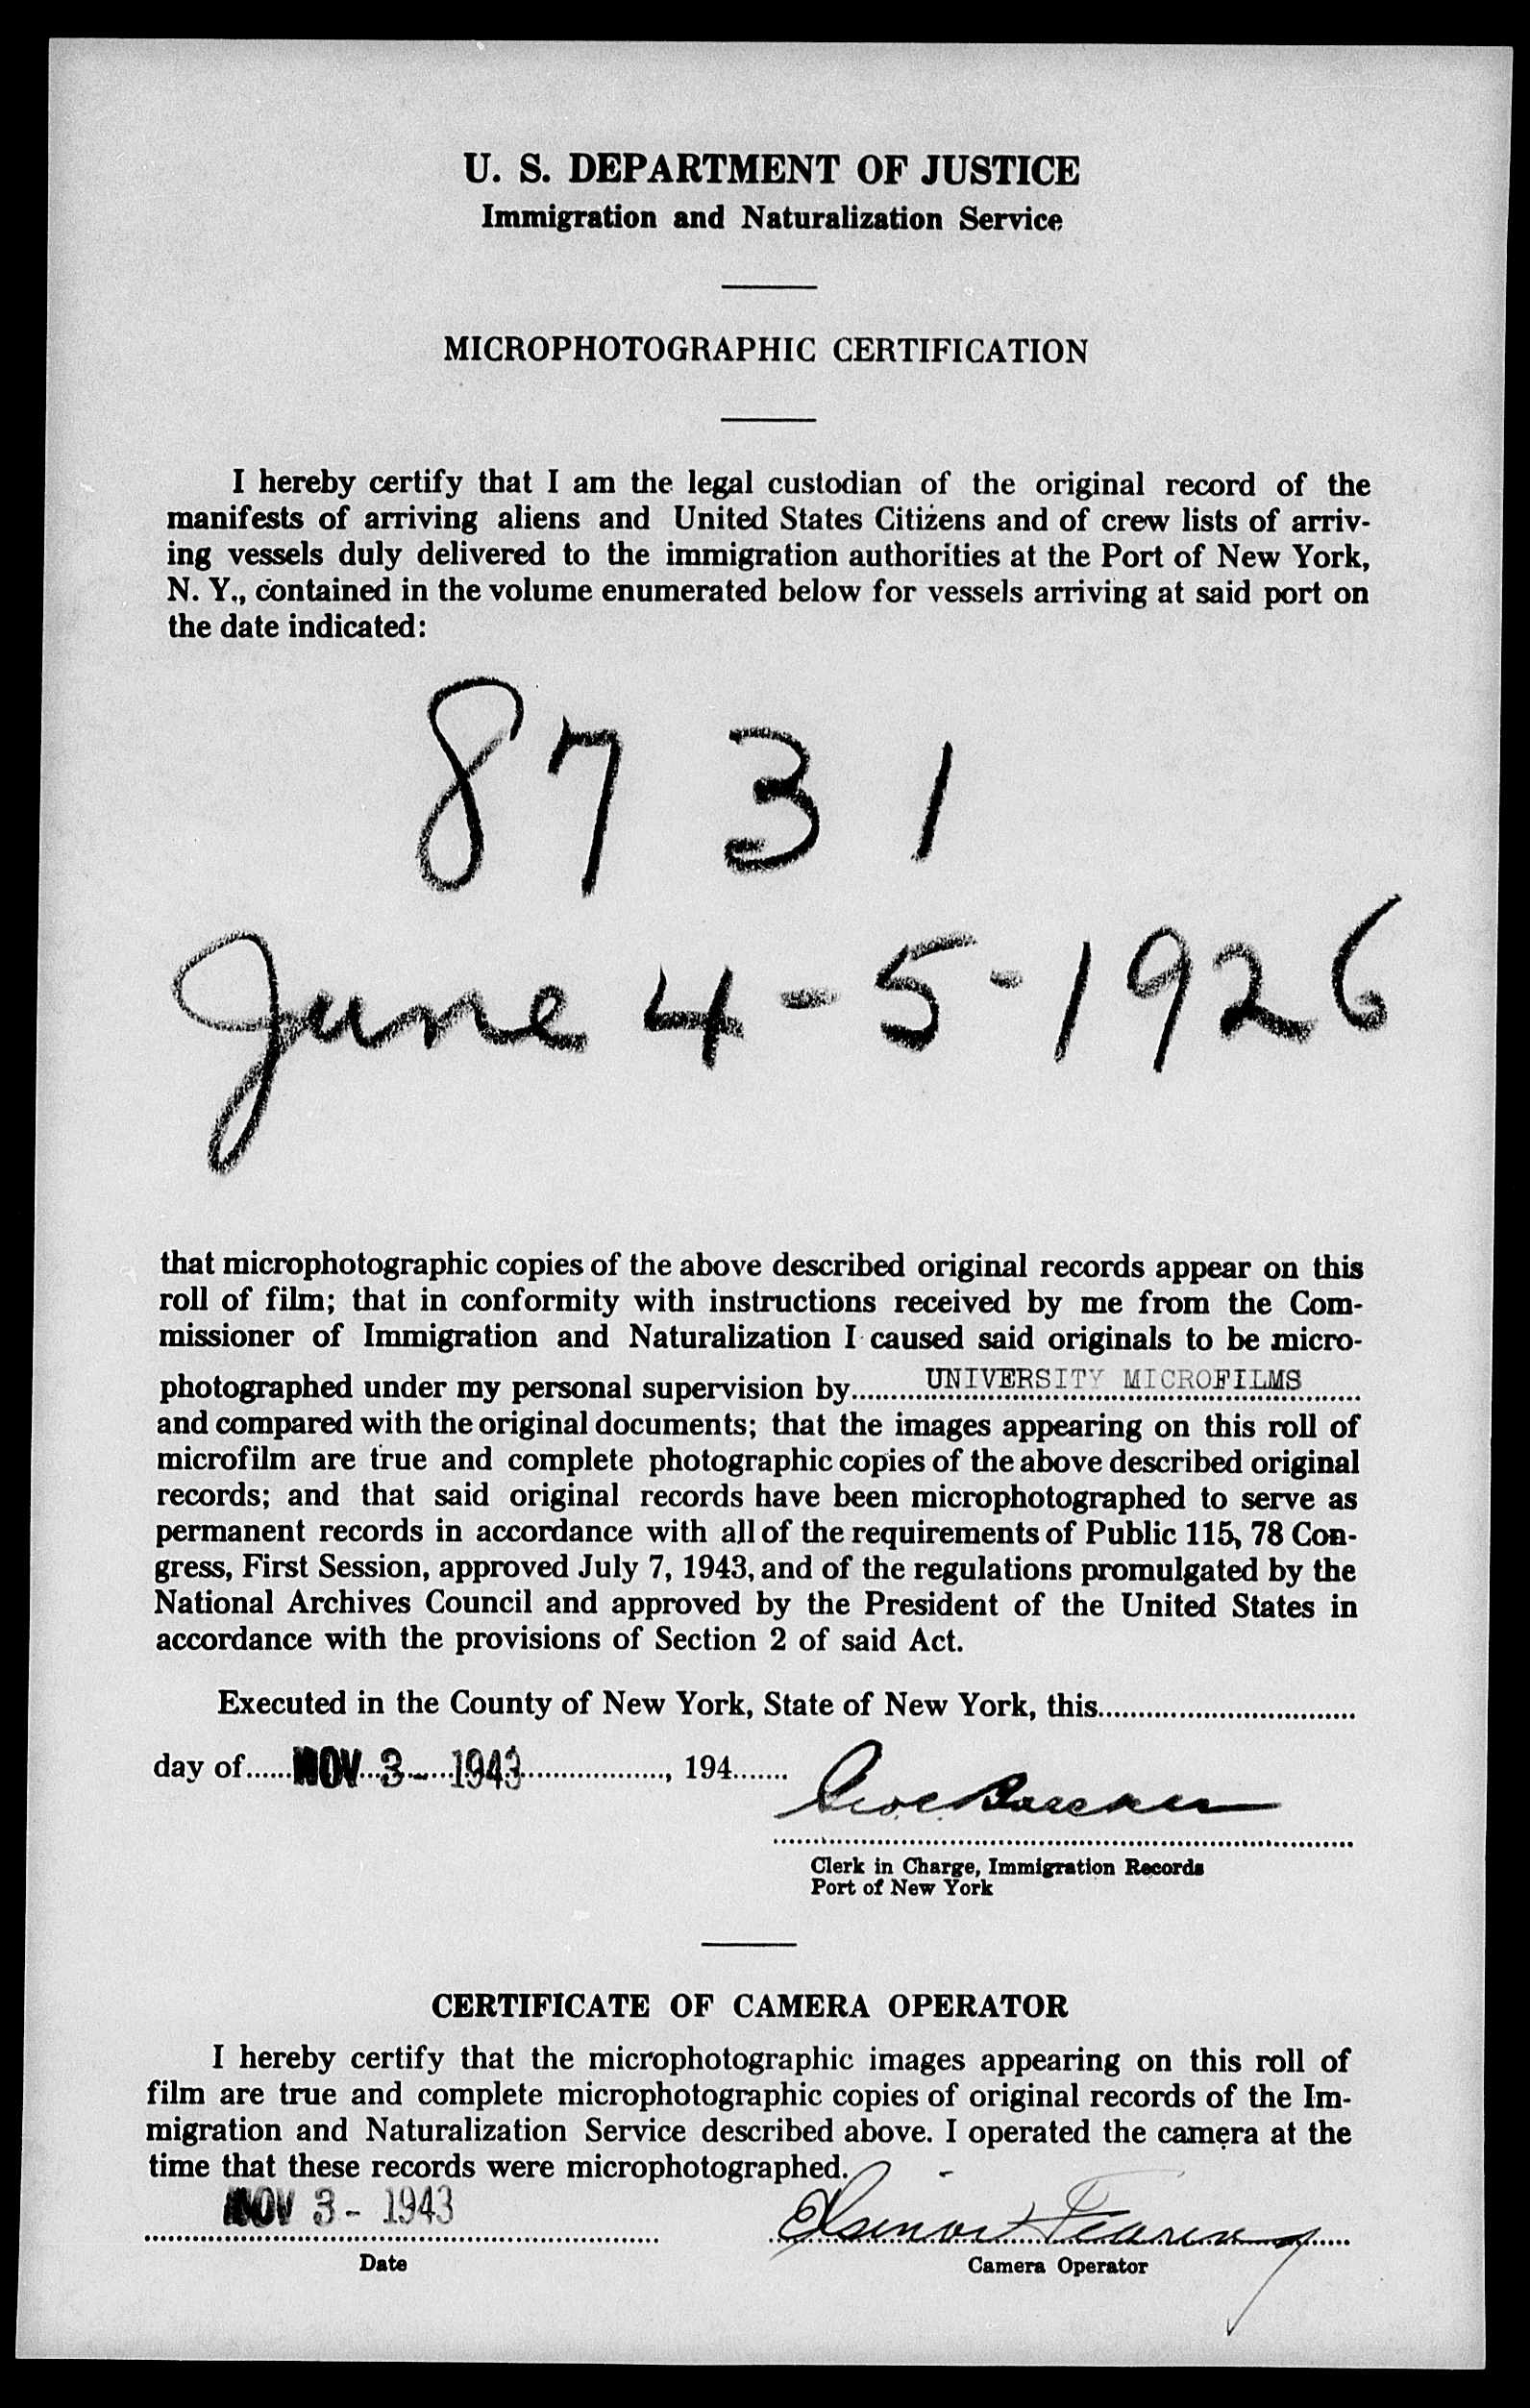 U. S. DEPARTMENT OF JUSTICE
Immigration and Naturalization Service
MICROPHOTOGRAPHIC CERTIFICATION
I hereby certify that I am the legal custodian of the original record of the
manifests of arriving aliens and United States Citizens and of crew lists of arriv-
ing vessels duly delivered to the immigration authorities at the Port of New York,
N. Y., contained in the volume enumerated below for vessels arriving at said port on
the date indicated:
8731
June 4-5-1926
that microphotographic copies of the above described original records appear on this
roll of film; that in conformity with instructions received by me from the Com-
missioner of Immigration and Naturalization I caused said originals to be micro-
photographed under my personal supervision by.........UNIVERSITY MICROFILMS.......
and compared with the original documents; that the images appearing on this roll of
microfilm are true and complete photographic copies of the above described original
records; and that said original records have been microphotographed to serve as
permanent records in accordance with all of the requirements of Public 115, 78 Con-
gress, First Session, approved July 7, 1943, and of the regulations promulgated by the
National Archives Council and approved by the President of the United States in
accordance with the provisions of Section 2 of said Act.
Executed in the County of New York, State of New York, this................................
day of......NOV 3 - 1943.................., 194.......
Clerk in Charge, Immigration Records
Port of New York
CERTIFICATE OF CAMERA OPERATOR
I hereby certify that the microphotographic images appearing on this roll of
film are true and complete microphotographic copies of original records of the Im-
migration and Naturalization Service described above. I operated the camera at the
time that these records were microphotographed.
NOV 3 - 1943
Date
Camera Operator